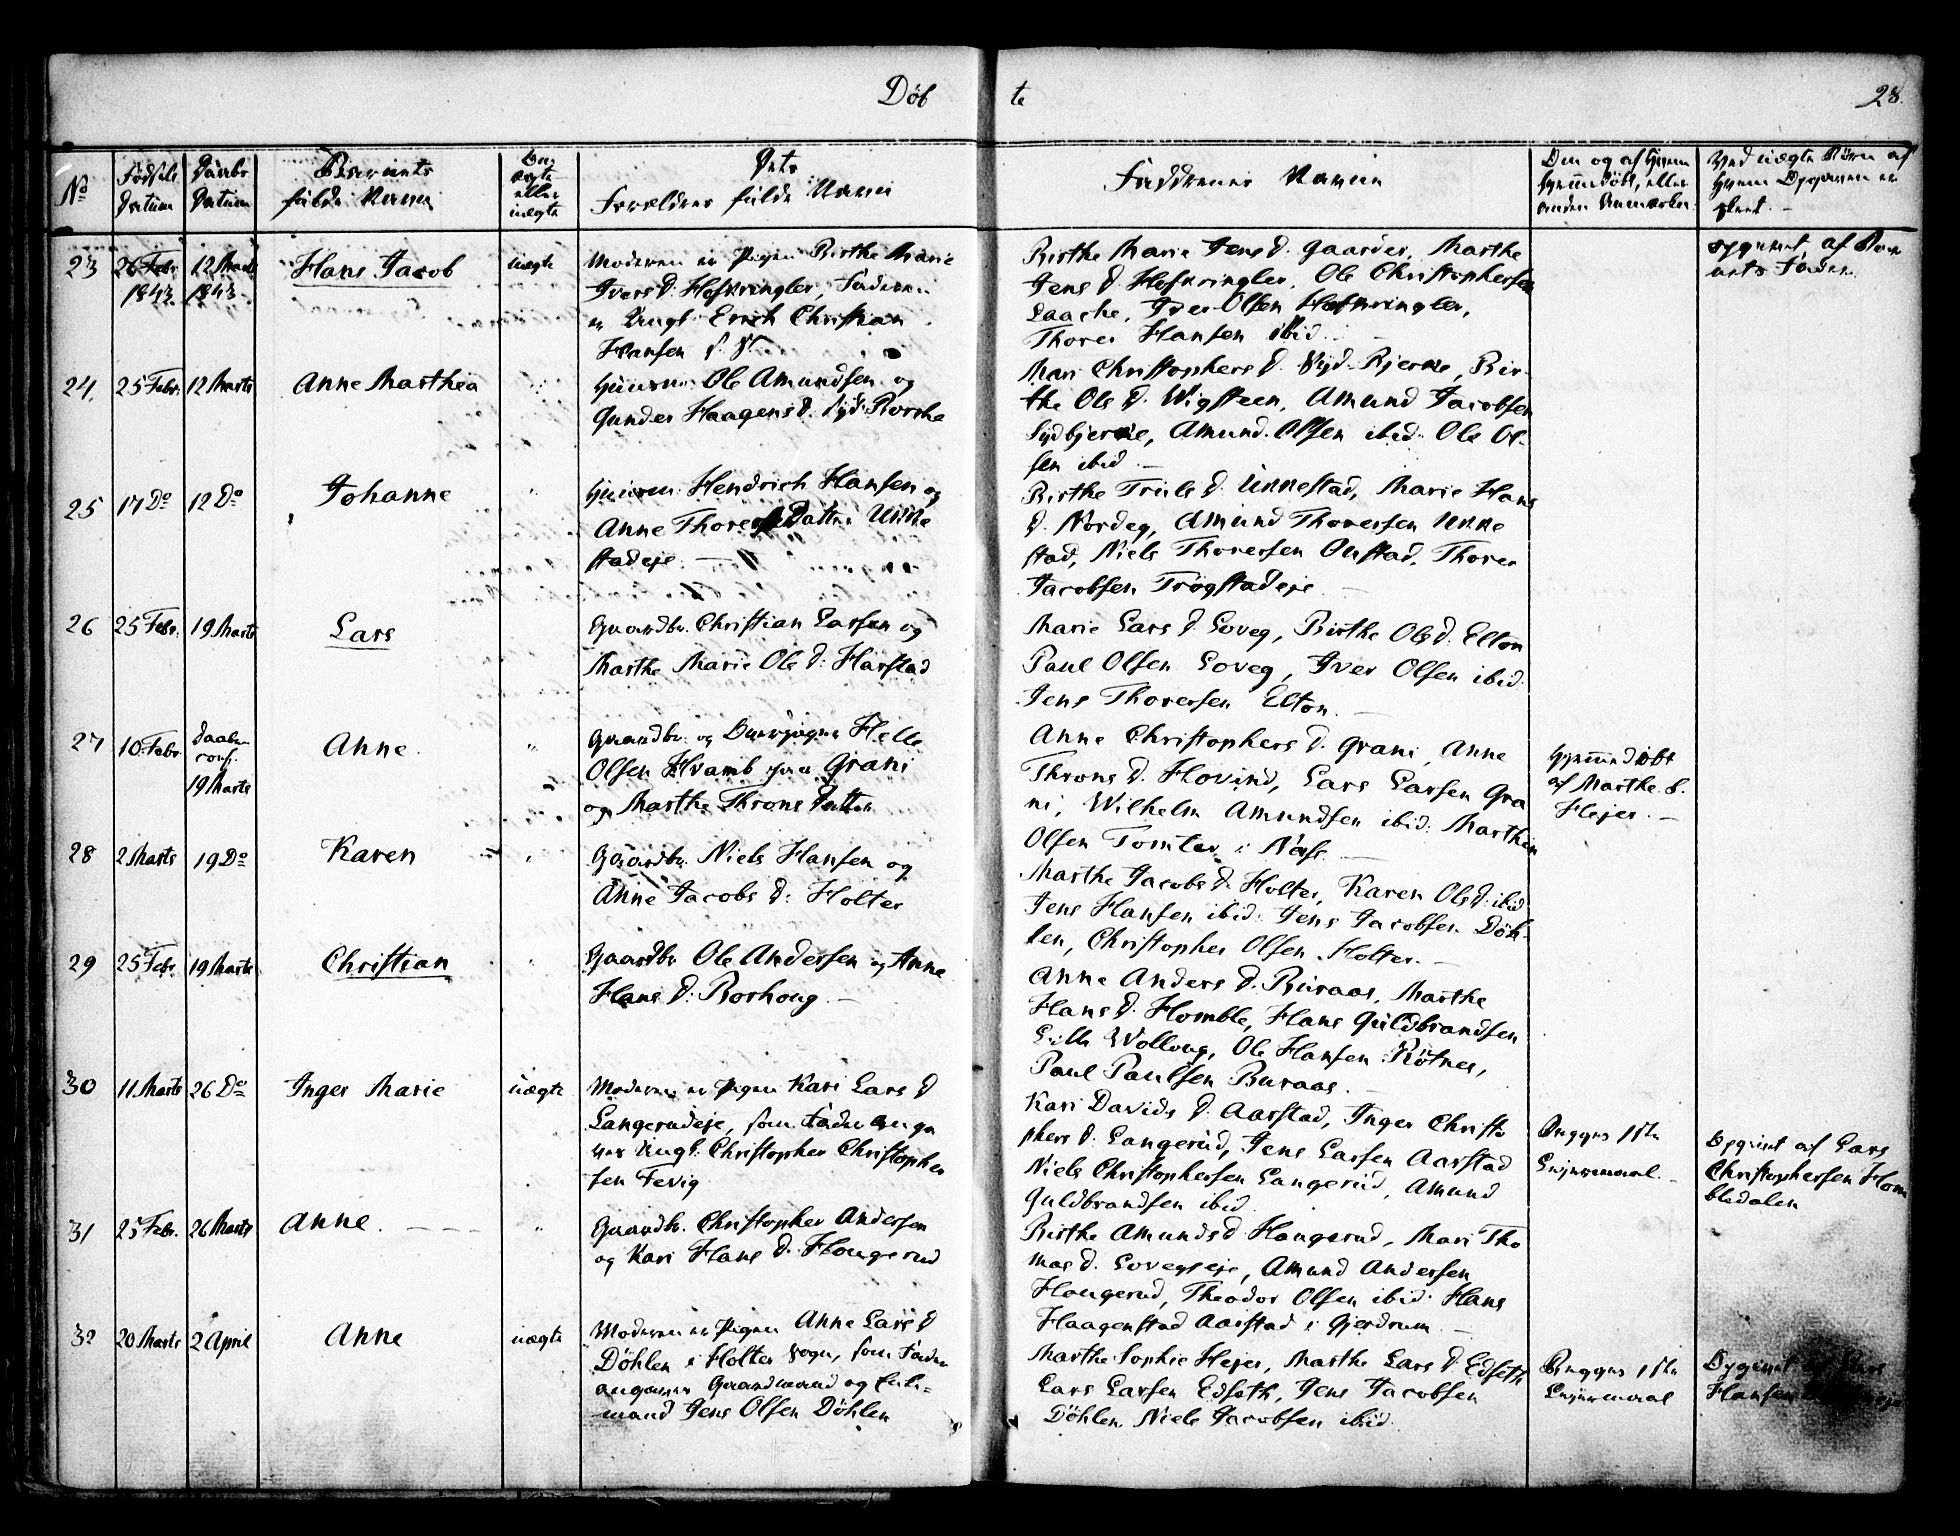 Døb te 28.
No
Fødsels Datum
Daabs Datum
Barnets fulde Navn
Om ægte eller uægte
Dets Forældres fulde Navne
Faddernes Navne
Om og af Hvem hjemmedøbt, eller anden Anmærkn.
Ved uægte Børn af Hvem Opgaven er skeet.
23 26 Febr. 1843 12 Marts 1843 Hans Jacob uægte
Moderen er Pigen Birthe Marie
Ivers D. Hofkringler, Faderen
er Ungk. Erich Christian
Hansen
Birthe Marie Jens D. Gaarder, Marthe
Jens D. Hofkringler, Ole Christophersen
Laache, Iver Olsen Hofkringler,
Thorer Hansen ibid.
opgivet af Barnets Fader
24. 25 Febr. 12 Marts Anne Marthea "
Huusm. Ole Amundsen og
Gunder Haagens D.
Mari Christophers D. Syd-Bjerke, Bir-
the Ols D. Wigsteen, Amund Jacobsen
Sydbjerke, Amund Olsen ibid. Ole Ol-
sen ibid
25 17 Do 12 Do Johanne "
Huusm. Hendrich Hansen og
Anne Thores Datter Ukke
stadeje.
Birthe Truls D. Ukkestad, Marie Hans
D. Nordeg, Amund Thoresen Ukke
stad, Niels Thoresen Onstad, Thorer
Jacobsen Trögstadeje
26 25 Febr. 19 Marts Lars
Gaardbr. Christian Larsen og
Marthe Marie Ols D. Harstad
Marie Lars D. Loveg, Birthe Ols D. Elton
Paul Olsen Loveg, Iver Olsen ibid.
Jens Thoresen Elton.
27 10 Febr. Daaben conf. 19 Marts Anne "
Gaardbr. og Helle
Olsen Kvamb paa Grani
og Marthe Throns Datter
Anne Christophers D. Grani, Anne
Throns D. Hovind, Lars Larsen Gra
ni, Wilhelm Amundsen ibid. Marthin
Olsen Tomter i Næs.
Hjemmedöbt
af Marthe S.
Hejer.
28 2 Marts 19 Do Karen "
Gaardbr. Niels Hansen og
Anne Jacobs D: Holter
Marthe Jacobs D. Holter, Karen Ols D. ibid
Jens Hansen ibid. Jens Jacobsen Döh-
len, Christopher Olsen Holter.
29 25 Febr. 19 Marts Christian "
Gaardbr. Ole Andersen og Anne
Hans D: Borhoug.
Anne Anders D. Buraas, Marthe
Hans D. Homble, Hans Guldbrandsen
Lille Wolloug, Ole Hansen Rötnes,
Paul Paulsen Buraas.
30 11 Marts 26 Do Inger Marie uægte
Moderen er Pigen Kari Lars D
Langerudeje, som Fader anga
ves Ungk. Christopher Christopher
sen Fevig
Kari Davids D. Aarstad, Inger Christo
phers D. Langerud, Jens Larsen Aarstad
Niels Christophersen Langerud, Amund
Guldbrandsen ibid.
Begges 1ste
Lejermaal.
Opgivet af Lars
Christophersen Hom
bledalen
31 25 Febr. 26 Marts Anne. "
Gaardbr. Christopher Andersen
og Kari Hans D. Hougerud
Birthe Amunds D Hougerud, Mari Tho
mas D. Lovegseje, Amund Andersen
Hougerud, Theodor Olsen ibid. Hans
Haagenstad Aarstad i Gjerdrum.
32 20 Marts 2 April Anne uægte
Moderen er Pigen Anne Lars D
Döhlen i Holter Sogn, som Fader
angives Gaardmand og Enke-
mand Jens Olsen Döhlen
Marthe Sophie Hejer, Marthe Lars D. Edseth
Lars Larsen Edseth, Jens Jacobsen
Döhlen, Niels Jacobsen ibid.
Begges 1ste
Lejermaal
Opgivet af Lars
Hansen